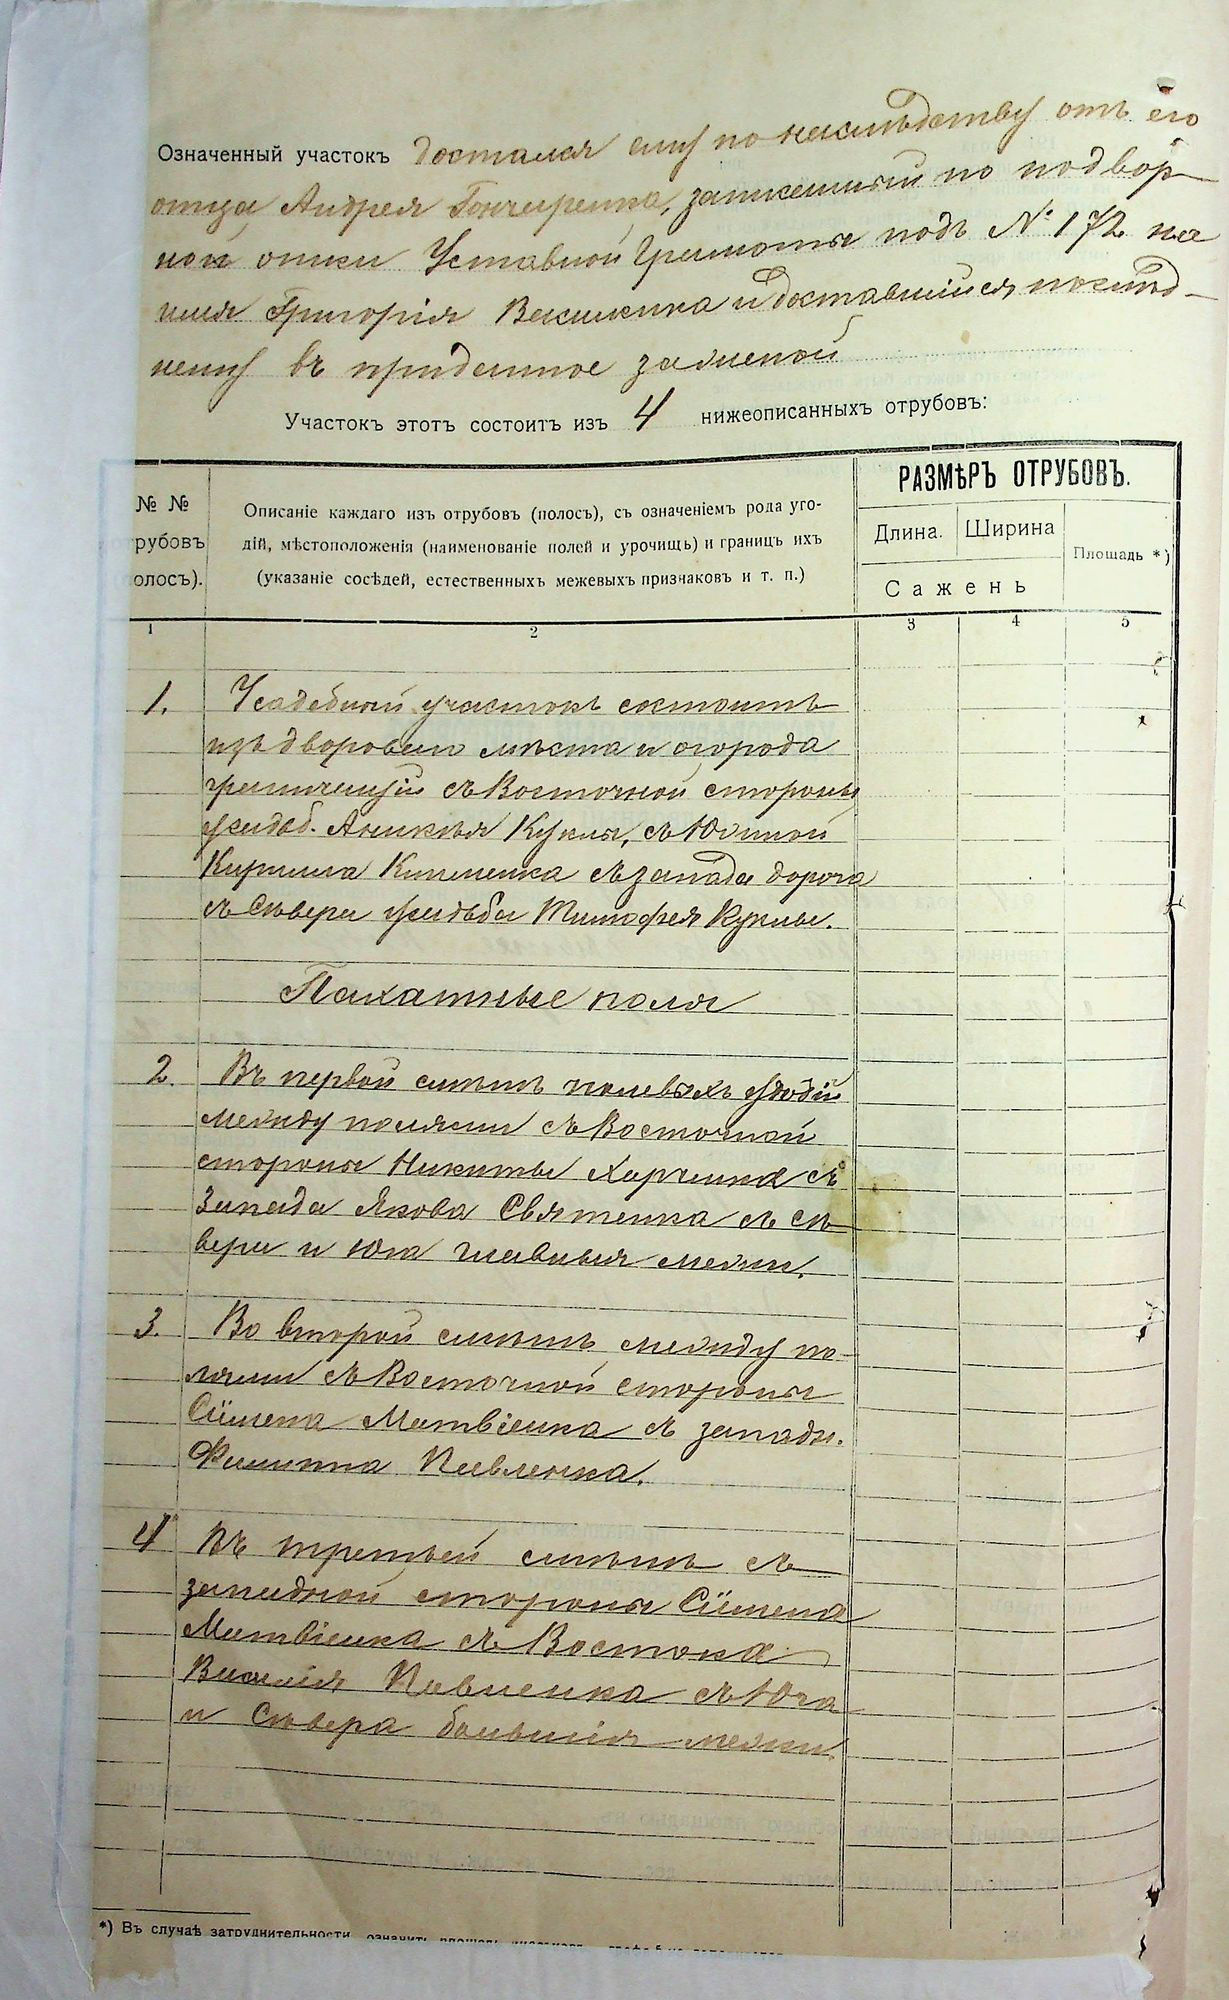 Означенный участокъ достался ему по наслѣдству отъ его
отца, Андрея Гончаренка, записанный по подвор-
ной описи Уставной Грамоты подъ № 172 на
имя Григорія Василенка и доставшійся послѣд-
нему въ приданное за женой
Участокъ этотъ состоитъ изъ 4 нижеописанныхъ отрубовъ:
№ №
отрубовъ
полосъ).
Описаніе каждаго изъ отрубовъ (полосъ), съ означеніемъ рода уго-
дій, мѣстоположенія (наименованіе полей и урочищъ) и границъ ихъ
(указаніе сосѣдей, естественныхъ межевыхъ признаковъ и т. п.)
РАЗМѢРЪ ОТРУБОВЪ.
Длина. Ширина
Площадь *)
Сажень
1 2 3 4 5
1. Усадебный участокъ состоитъ
изъ дворовего мѣста и огорода
граничащій съ Восточной стороны
усадьб. Аникѣя Куклы, съ Южной
Кирилла съ запада дорога
съ Сѣвера усадьба Тимофея Куклы.
Пахатные поля
2. Въ первой смѣнѣ полевыхъ угодій
между полями съ Восточной
стороны Никиты Харченка съ
Запада Якова Святенка съ Сѣ-
вера и Юга главныя межи.
3. Во второй смѣнѣ между по-
лями съ Восточной стороны
Сѣмена Матвіенка съ запада.
Филиппа Павленка.
4 Въ третьей смѣнѣ съ
западной стороны Сѣмена
Матвіенка съ Востока
Василія Павленка съ Юга
и Сѣвера большія межи.
*) Въ случаѣ затруднительности означить площадь